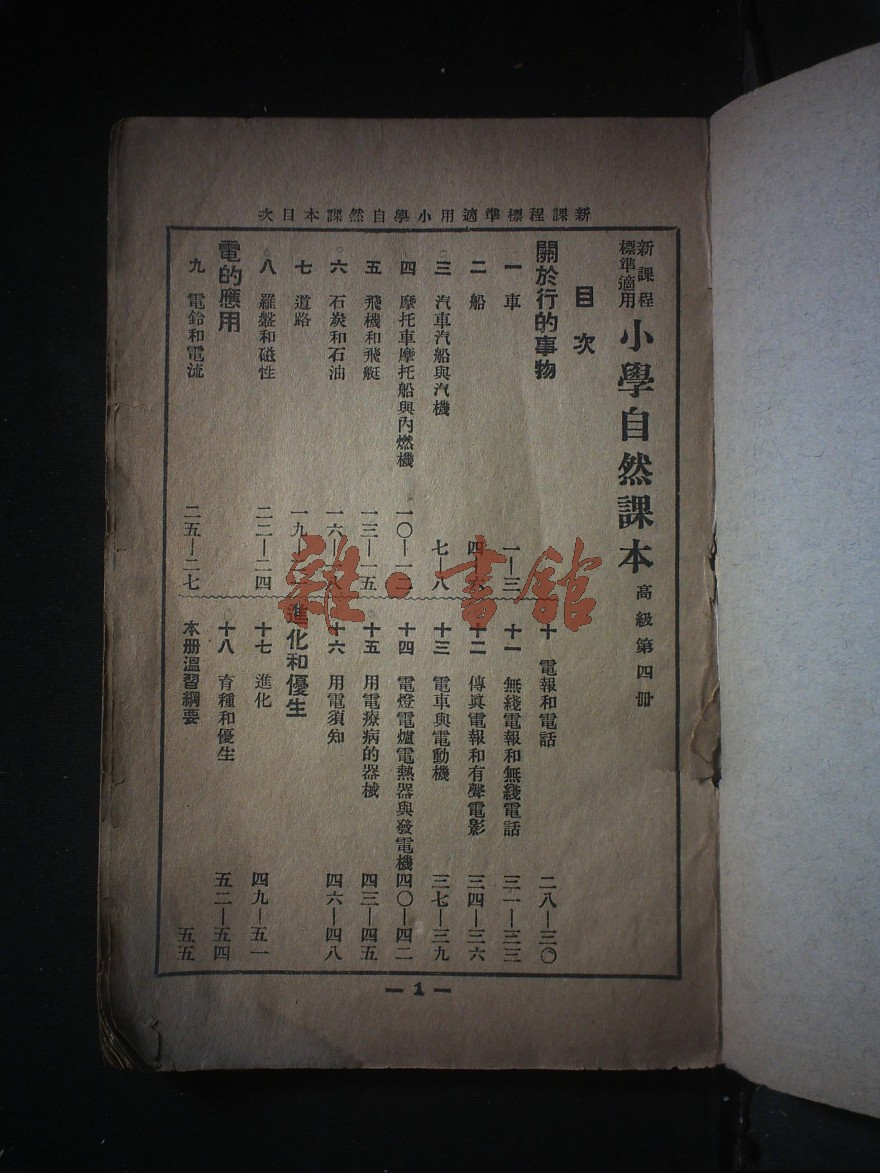 新課程標準適用小學自然課本目次
新課程
標準適用
小學自然課本 高級第四册
目次
關於行的事物
一 車 一—三
二 船 四—六
三 汽車汽船與汽機 七—八
四 摩托車摩托船與內燃機 一〇—一二
五 飛機和飛艇 一三—一五
六 石炭和石油 一六—一八
七 道路 一九—
八 羅盤和磁性 二二—二四
電的應用
九 電鈴和電流 二五—二七
十 電報和電話 二八—三〇
十一 無綫電報和無綫電話 三一—三三
十二 傳眞電報和有聲電影 三四—三六
十三 電車與電動機 三七—三九
十四 電燈電爐電熱器與發電機 四〇—四二
十五 用電療病的器械 四三—四五
十六 用電須知 四六—四八
進化和優生
十七 進化 四九—五一
十八 育種和優生 五二—五四
本册溫習綱要 五五
— 1 —
雜·書館